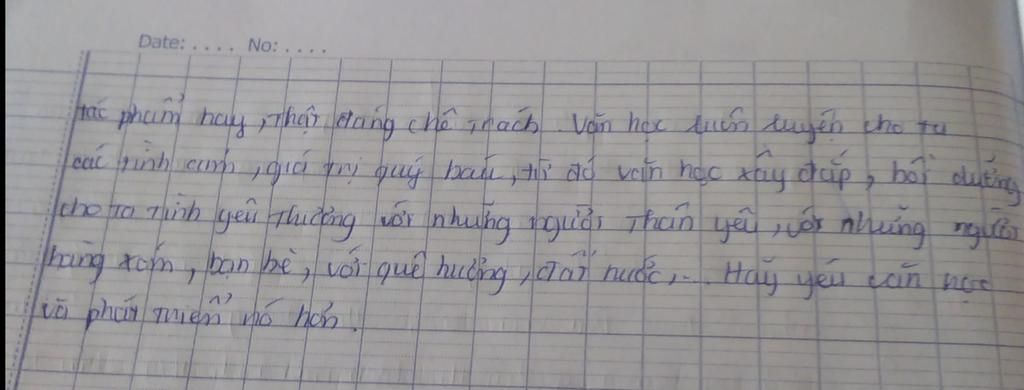 Date: .... No: ....
tác phẩm hay, thật đáng chê trách. Văn học luôn luyện cho ta
các tình cảm, giá trị quý báu, từ đó văn học xây đắp, bồi dưỡng
cho ta tình yêu thương với những người thân yêu, với những người
hàng xóm, bạn bè, với quê hương, đất nước,... Hãy yêu văn học
và phát triển nó hơn.